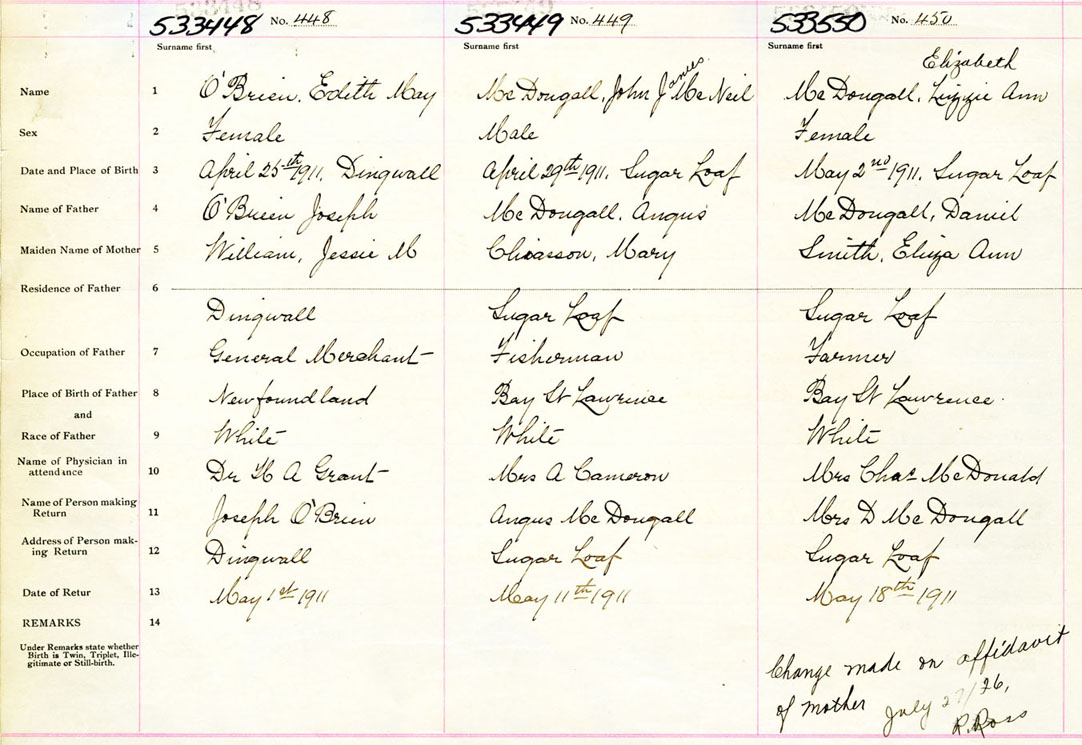 533448 No. 448 533449 No. 449 533550 No. 450
Surname first Surname first Surname first
Elizabeth
Name 1 O'Brien, Edith May McDougall, John James McNeil McDougall, Lizzie Ann
Sex 2 Female Male Female
Date and Place of Birth 3 April 25th 1911, Dingwall April 29th 1911, Sugar Loaf May 2nd 1911, Sugar Loaf
Name of Father 4 O'Brien Joseph McDougall, Angus McDougall, Daniel
Maiden Name of Mother 5 William, Jessie M Chiasson, Mary Smith, Eliza Ann
Residence of Father 6
Dingwall Sugar Loaf Sugar Loaf
Occupation of Father 7 General Merchant Fisherman Farmer
Place of Birth of Father 8 Newfoundland Bay St Lawrence Bay St Lawrence
and
Race of Father 9 White White White
Name of Physician in
attendance 10 Dr H A Grant Mrs A Cameron Mrs Chas McDonald
Name of Person making
Return 11 Joseph O'Brien Angus McDougall Mrs D McDougall
Address of Person mak-
ing Return 12 Dingwall Sugar Loaf Sugar Loaf
Date of Retur 13 May 1st 1911 May 11th 1911 May 18th 1911
REMARKS 14
Under Remarks state whether
Birth is Twin, Triplet, Ille-
gitimate or Still-birth.
Change made on affidavit
of mother July 27/26,
R. Ross